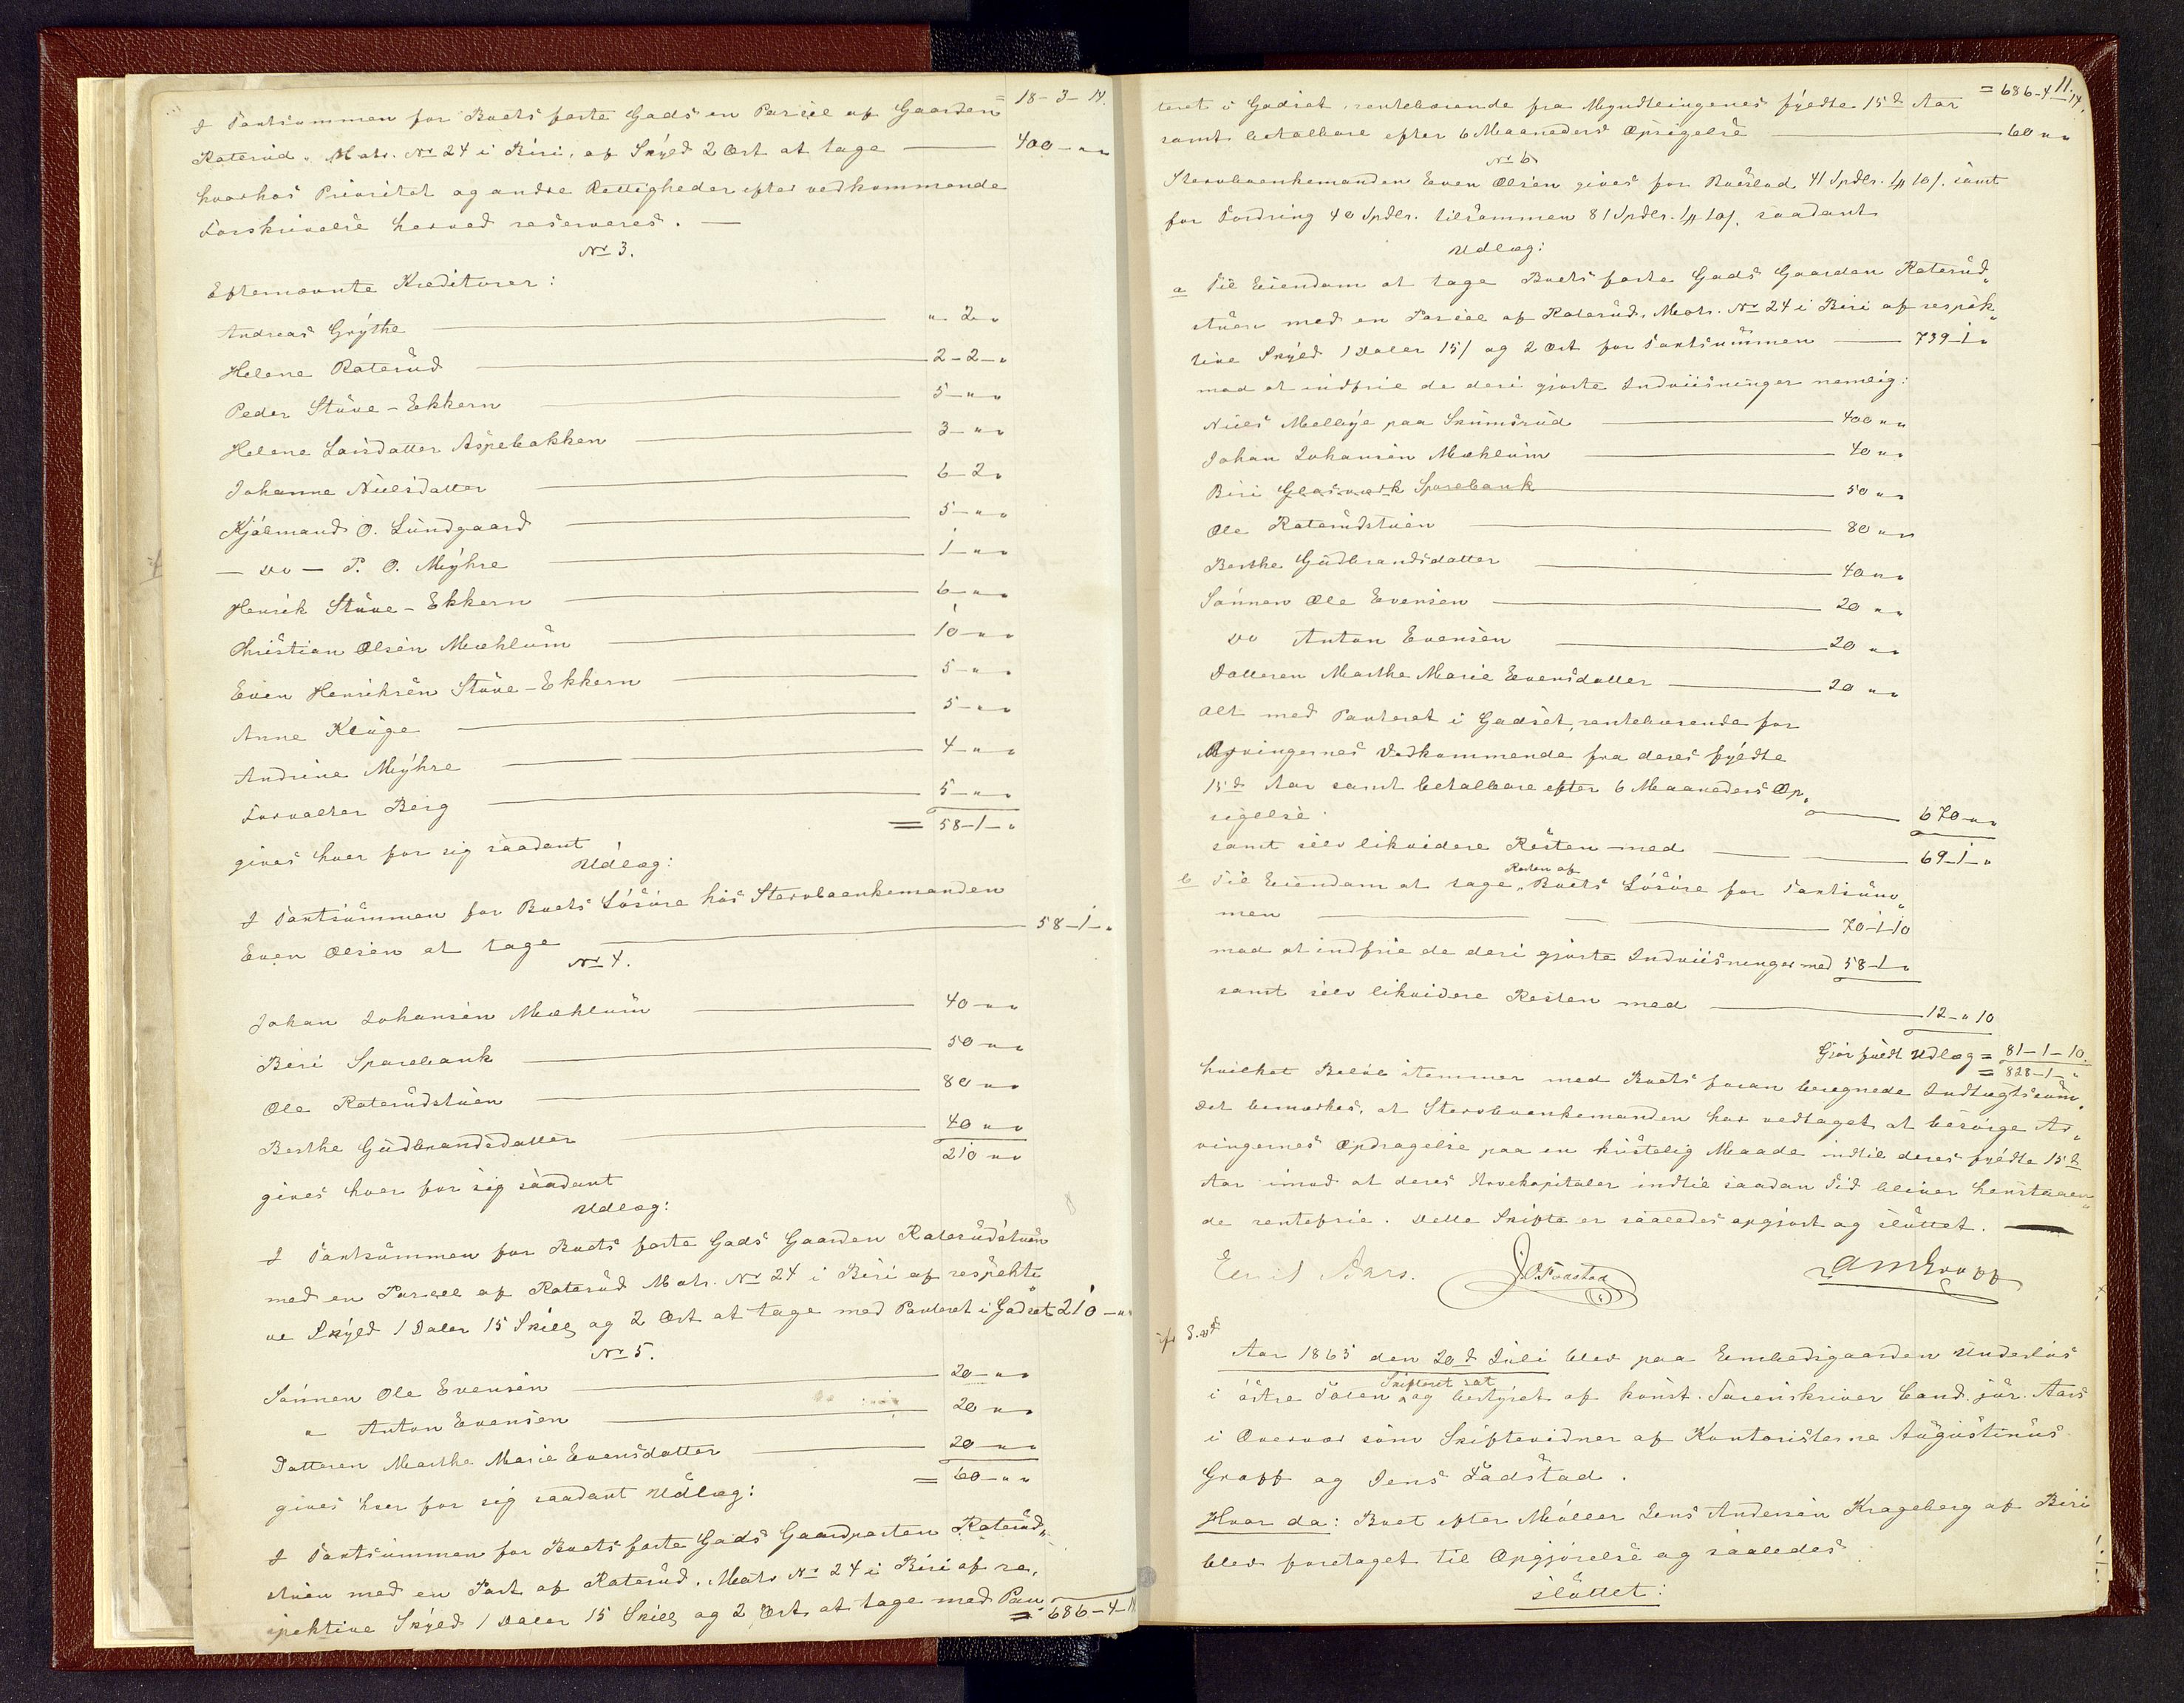 = 18-3-14.
I Taxtsummen for Boets faste Gods en Parcel af Gaarden
Raterud, Matr. No 24 i Biri, af Skyld 2 Ort at tage — 400-"-"
hvorhos Prioritet og andre Rettigheder efter vedkommende
Forskrivelse herved reserveres. —
No 3.
Efternævnte Kreditorer:
Andreas Grythe — " 2 "
Helene Raterud — 2-2-"
Peder Stuve-Ekkern — 5-"-"
Helene Larsdatter Aspebakken — 3-"-"
Johanne Nielsdatter — 6-2-"
Kjøbmand O. Lundgaard — 5-"-"
— do — P. O. Myhre — 1-"-"
Henrik Stuve-Ekkern — 6-"-"
Christian Olsen Mæhlum — 10-"-"
Even Henriksen Stuve-Ekkern — 5-"-"
Anne Kluge — 5-"-"
Andrine Myhre — 4-"-"
Forvalter Berg — 5-"-"
= 58-1-"
gives hver for sig saadant
Udlæg:
I Taxtsummen for Boets Løsøre hos Stervboenkemanden
Even Olsen at tage — 58-1-"
No 4.
Johan Johansen Mæhlum — 40-"-"
Biri Sparebank — 50-"-"
Ole Raterudstuen — 80-"-"
Berthe Gudbrandsdatter — 40-"-"
210-"-"
gives hver for sig saadant
Udlæg:
I Taxtsummen for Boets faste Gods Gaarden Raterudstuen
med en Parcel af Raterud Matr. No 24 i Biri af respekti„
ve Skyld 1 Daler 15 Skill og 2 Ort at tage med Panteret i Godset 210-"-"
No 5.
Sønnen Ole Evensen — 20-"-"
" Anton Evensen — 20-"-"
Datteren Marthe Marie Evensdatter — 20-"-"
= 60-"-"
gives hver for sig saadant Udlæg:
I Taxtsummen for Boets faste Gods Gaardparten Raterud„
stuen med en Part af Raterud, Matr No 24 i Biri af re„
spektive Skyld 1 Daler 15 Skill og 2 Ort at tage med Pan„
= 686-4-14
11.
= 686-4-14.
teret i Godset, rentebærende fra Myndlingernes fyldte 15d Aar
samt betalbare efter 6 Maaneders Opsigelse — 60 " "
No 6
Stervboenkemanden Even Olsen gives for Boeslod 41 Spdlr. 1 # 10 /. samt
for Fordring 40 Spdlr. tilsammen 81 Spdlr. 1 # 10 /. saadant
Udlæg:
a Til Eiendom at tage Boets faste Gods Gaarden Raterud„
stuen med en Parcel af Raterud, Matr. No 24 i Biri af respek„
tive Skyld 1 Daler 15 / og 2 Ort for Taxtsummen — 739-1-"
mod at indfrie de deri gjorte Indviisninger nemlig:
Niels Melbye paa Skumsrud — 400 " "
Johan Johansen Mæhlum — 40 " "
Biri Glasværk Sparebank — 50 " "
Ole Raterudstuen — 80 " "
Berthe Gudbrandsdatter — 40 " "
Sønnen Ole Evensen — 20 " "
do Anton Evensen — 20 " "
Datteren Marthe Marie Evensdatter — 20 " "
Alt med Panteret i Godset, rentebærende for
Arvingernes Vedkommende fra deres fyldte
15d Aar samt betalbare efter 6 Maaneders Op„
sigelse — 670-"-"
samt selv likvidere Resten med — 69-1-"
Resten af
b Til Eiendom at tage Boets Løsøre for Taxtsum„
men — 70-1-10
mod at indfrie de deri gjorte Indviisninger med 58-1-"
samt selv likvidere Resten med — 12-"-10
Gjør fuldt Udlæg = 81-1-10.
= 828-1-"
hvilket Beløb stemmer med Boets foran beregnede Indtægtssum„
Det bemærkes, at Stervboenkemanden har vedtaget at besørge Ar„
vingernes Opdragelse paa en kristelig Maade indtil deres fyldte 15d
Aar imod at deres Arvekapitaler indtil saadan Tid bliver henstaaen„
de rentefrie. Dette Skifte er saaledes opgjort og sluttet. —
Emil Aars.
Aar 1865 den 20d Juli blev paa Embedsgaarden Underlus
Skifteret sat
i østre Toten og bestyret af konst. Sorenskriver Cand. jur. Aars
i Overvær som Skiftevidner af Kontoristerne Augustinus
Gropp og Jens Fadstad.
Hvor da: Boet efter Møller Jens Andersen Krageberg af Biri
blev foretaget til Opgjørelse og saaledes
sluttet: